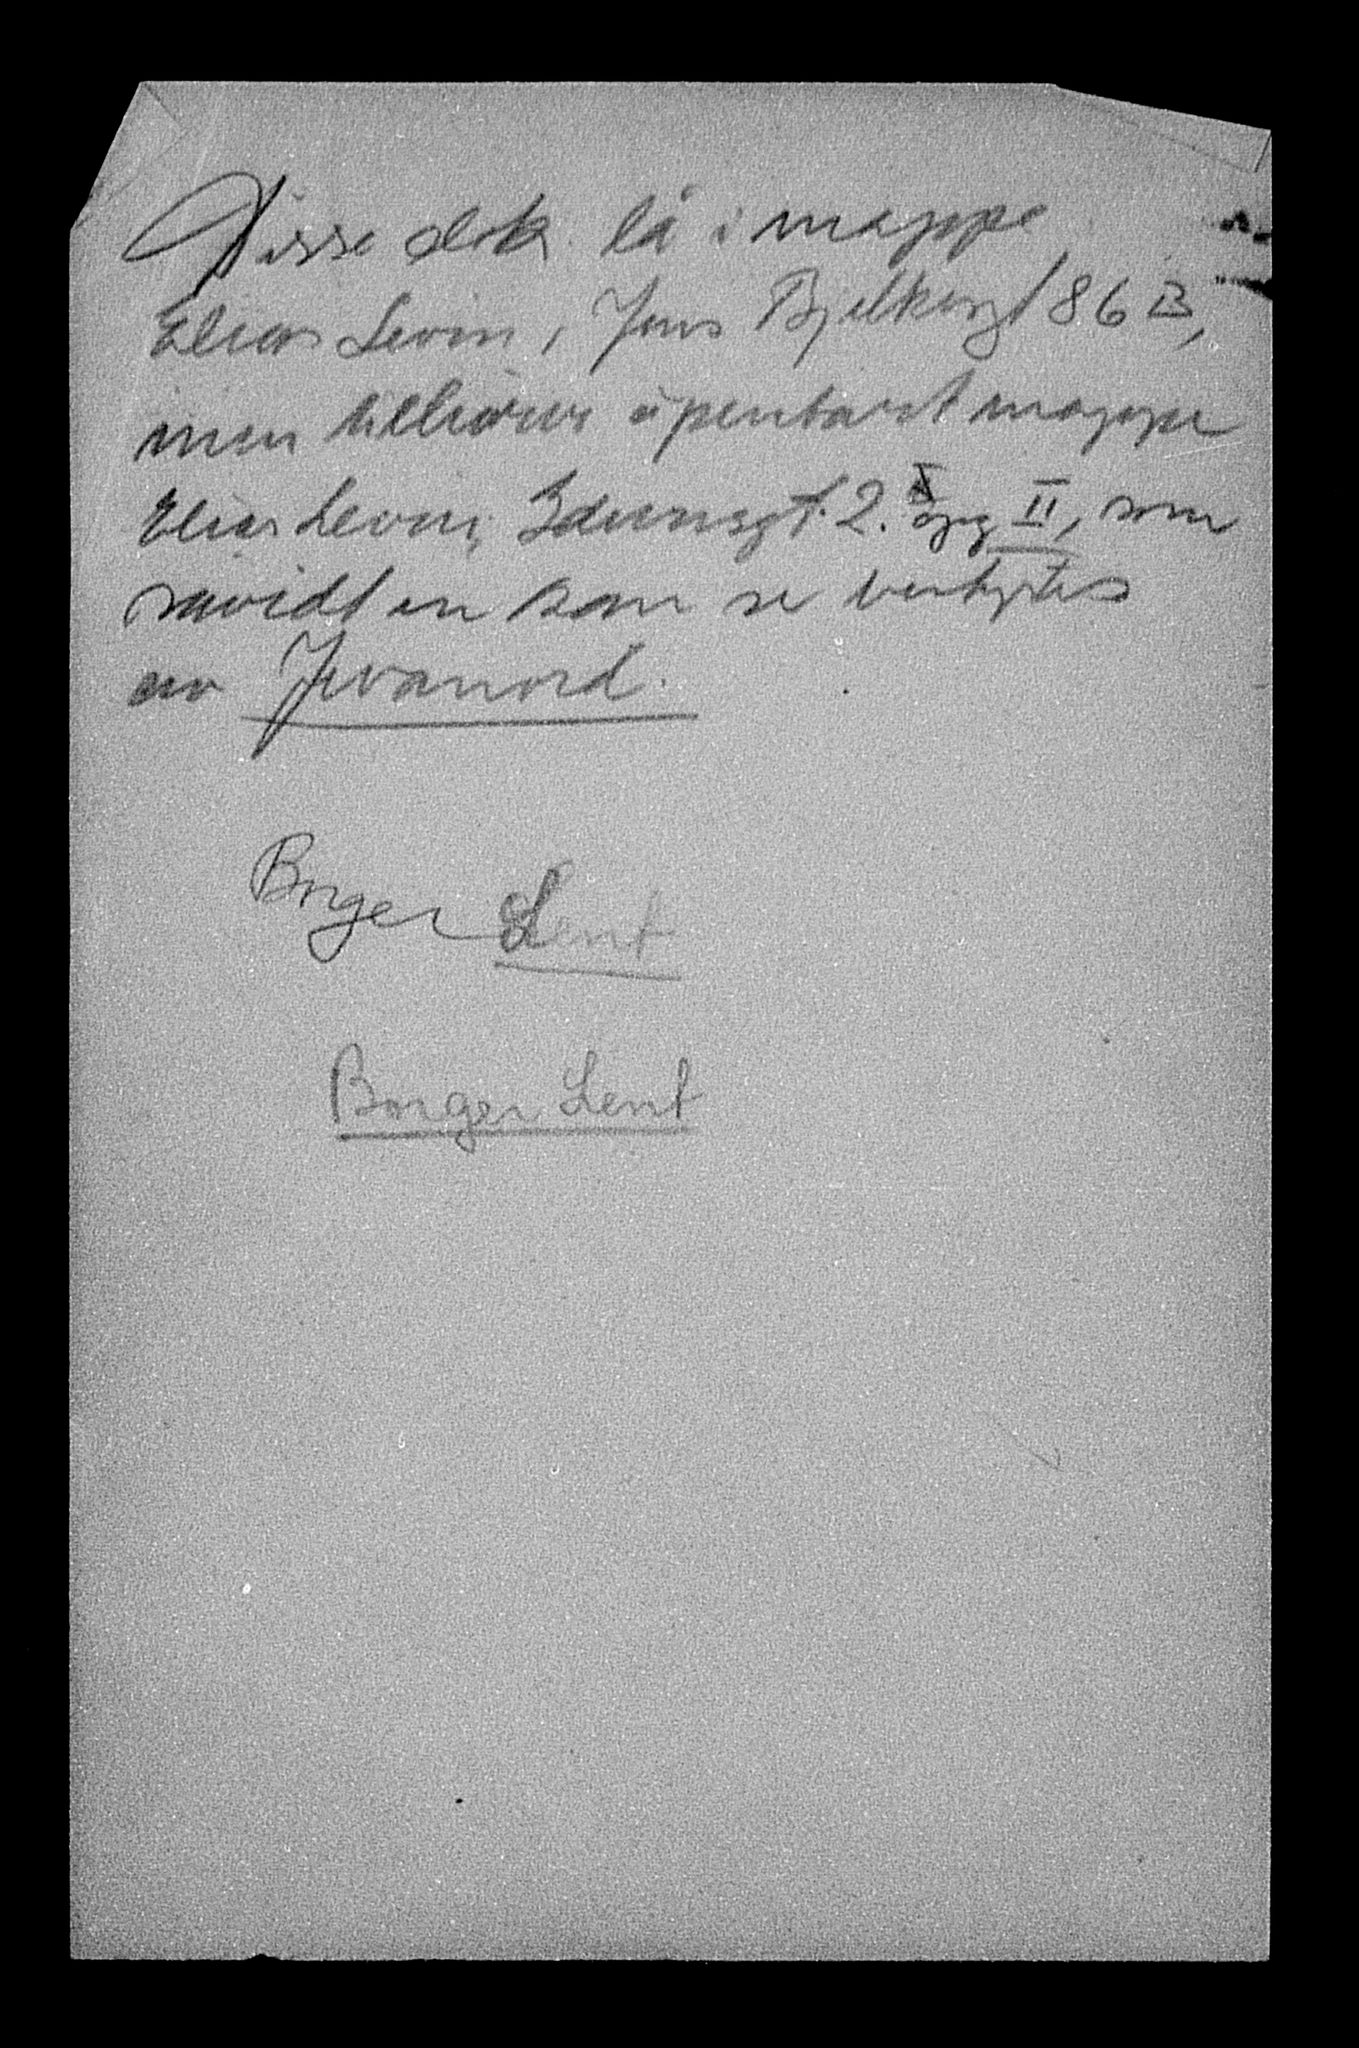 Disse dok lå i mappe
Elias Levin, Jens Bjelkesgt 86 B,
men tilhører åpenbart mappe
Elias Levin, gt. 2. opg II, som
savidt en kan se bestyrtes
av
Borger Lent
Borger Lent